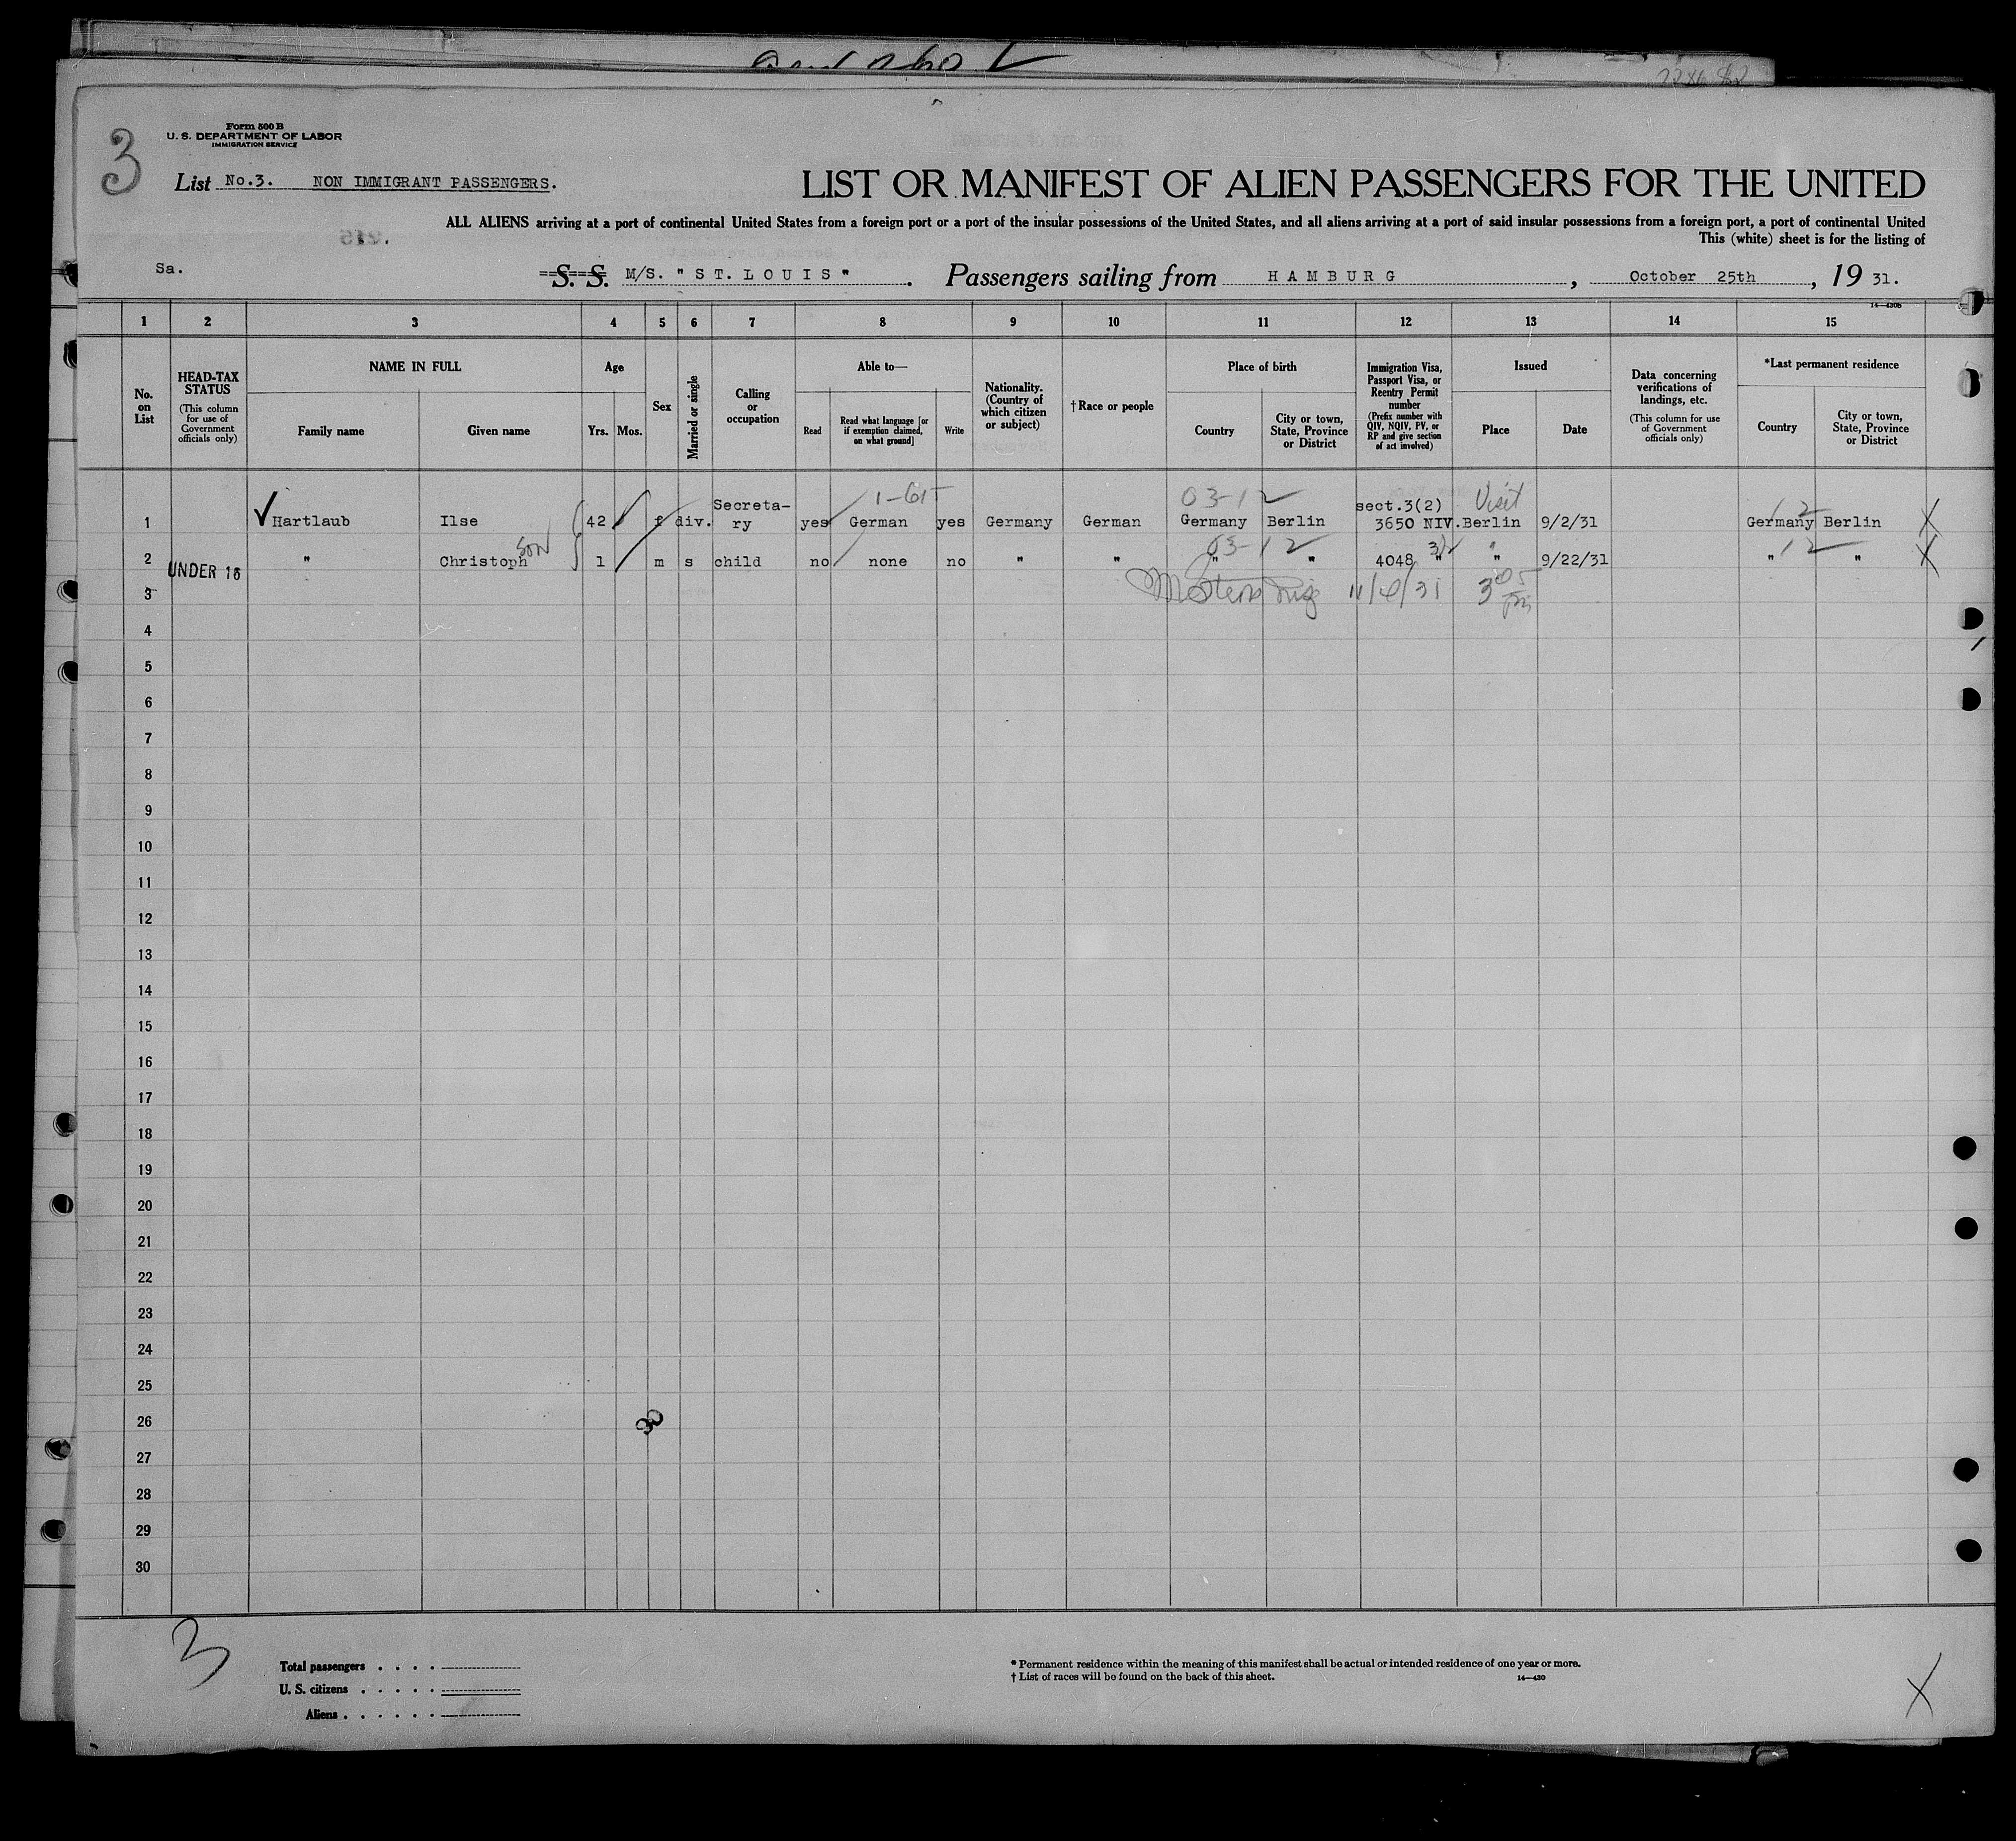 Form 500 B
U. S. DEPARTMENT OF LABOR
IMMIGRATION SERVICE
3
List No.3. NON IMMIGRANT PASSENGERS.
LIST OR MANIFEST OF ALIEN PASSENGERS FOR THE UNITED
ALL ALIENS arriving at a port of continental United States from a foreign port or a port of the insular possessions of the United States, and all aliens arriving at a port of said insular possessions from a foreign port, a port of continental United
This (white) sheet is for the listing of
Sa.
S. S. M/S. "ST. LOUIS". Passengers sailing from HAMBURG, October 25th, 19 31.
14—430b
1 2 3 4 5 6 7 8 9 10 11 12 13 14 15
No. on List
HEAD-TAX STATUS
(This column for use of Government officials only)
NAME IN FULL
Family name
Given name
Age
Yrs.
Mos.
Sex
Married or single
Calling or occupation
Able to—
Read
Read what language [or if exemption claimed, on what ground]
Write
Nationality. (Country of which citizen or subject)
† Race or people
Place of birth
Country
City or town, State, Province or District
Immigration Visa, Passport Visa, or Reentry Permit number
(Prefix number with QIV, NQIV, PV, or RP and give section of act involved)
Issued
Place
Date
Data concerning verifications of landings, etc.
(This column for use of Government officials only)
*Last permanent residence
Country
City or town, State, Province or District
1-61 03-12 Visit
Secreta- sect.3(2)
1 Hartlaub Ilse 42 f div. ry yes German yes Germany German Germany Berlin 3650 NIV. Berlin 9/2/31 Germany Berlin X
son 03-12 3) 12
2 UNDER 16 " Christoph 1 m s child no none no " " " " 4048 " " 9/22/31 " " X
3 11/4/31 3 05 pm
4
5
6
7
8
9
10
11
12
13
14
15
16
17
18
19
20
21
22
23
24
25
26
27
28
29
30
3
Total passengers . . . .
U. S. citizens . . . . .
Aliens . . . . . .
* Permanent residence within the meaning of this manifest shall be actual or intended residence of one year or more.
† List of races will be found on the back of this sheet.
14—430
X